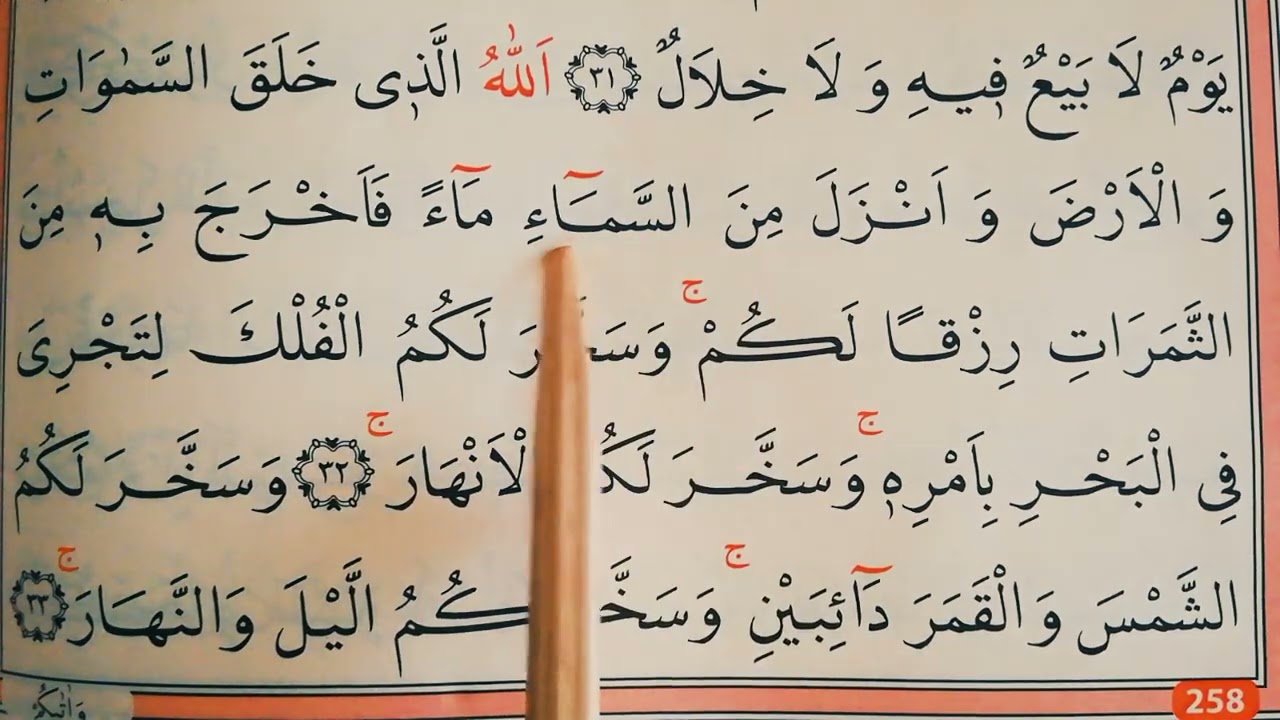 يَوْمٌ لَا بَيْعٌ ف۪يهِ وَ لَا خِلَالٌ ﴿٣١﴾ اَللّٰهُ الَّذ۪ى خَلَقَ السَّمٰوَاتِ
وَ الْاَرْضَ وَ اَنْزَلَ مِنَ السَّمَٓاءِ مَٓاءً فَاَخْرَجَ بِه۪ مِنَ
الثَّمَرَاتِ رِزْقًا لَكُمْۚ لَكُمُ الْفُلْكَ لِتَجْرِىَ
فِى الْبَحْرِ بِاَمْرِه۪ۚ وَسَخَّرَ الْاَنْهَارَۚ ﴿٣٢﴾ وَسَخَّرَ لَكُمُ
الشَّمْسَ وَ الْقَمَرَ دَٓائِبَيْنِۚ الَّيْلَ وَالنَّهَارَۚ ﴿٣٣﴾
258